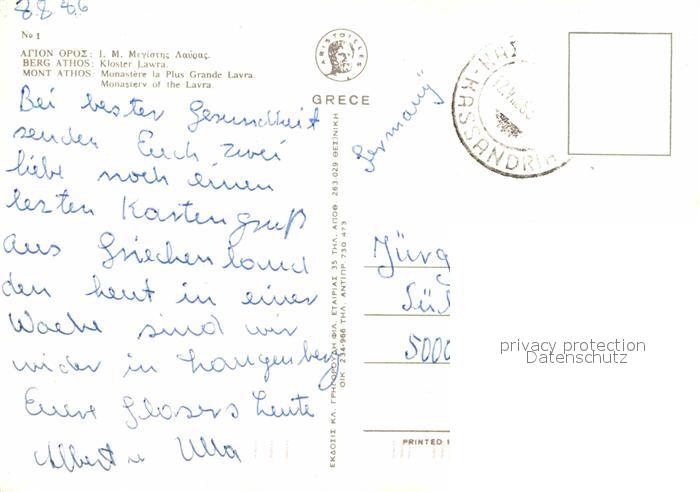 8.8.86
No 1
ΑΓΙΟΝ ΟΡΟΣ: Ι. Μ. Μεγίστης Λαύρας.
BERG ATHOS: Kloster Lawra.
MONT ATHOS: Monastère la Plus Grande Lavra.
Monastery of the Lavra.
Bei bester Gesundheit
senden Euch zwei
liebe noch einen
lezten Kartengruß
aus Griechenland
den heut in einer
Woche sind wir
wider in Langenberg
Euere Glasers Leute
Albert u Ulla
ARISTOTELES
GRECE
ΕΚΔΟΣΙΣ ΚΛ. ΓΡΗΓΟΡΟΥΔΗ ΦΙΛ. ΕΤΑΙΡΙΑΣ 35 ΤΗΛ. ΑΠΟΘ. 263-029 ΘΕΣ)ΝΙΚΗ
ΟΙΚ. 234-966 ΤΗΛ. ΑΝΤΙΠΡ. 730 473
Germany
KASSANDRIA
Jürg
Süd
5000
PRINTED I
privacy protection
Datenschutz